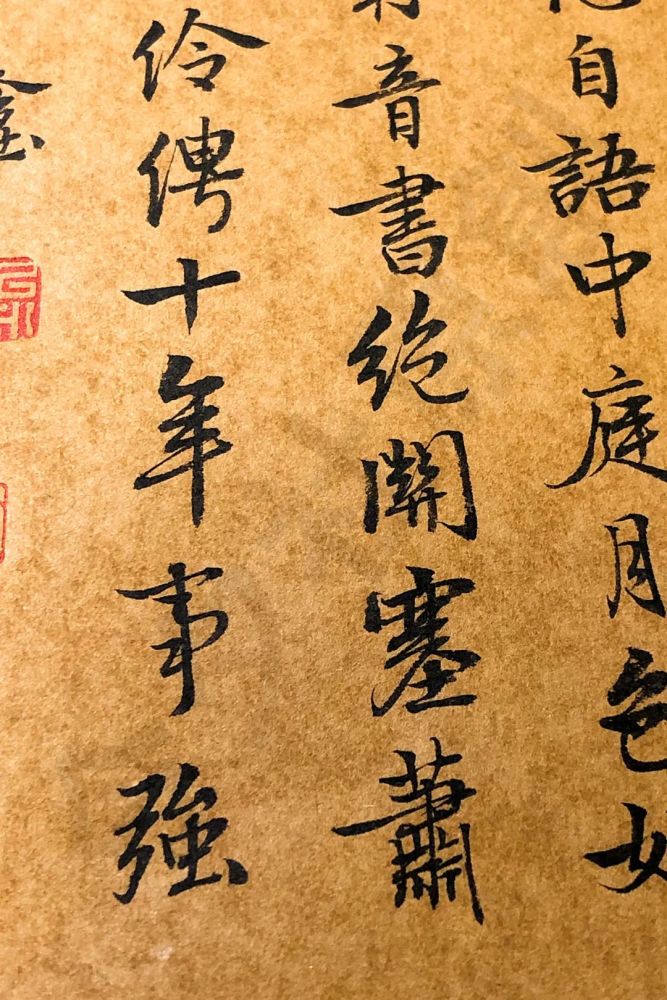 自語中庭月色
音書絶關塞蕭
伶俜十年事強